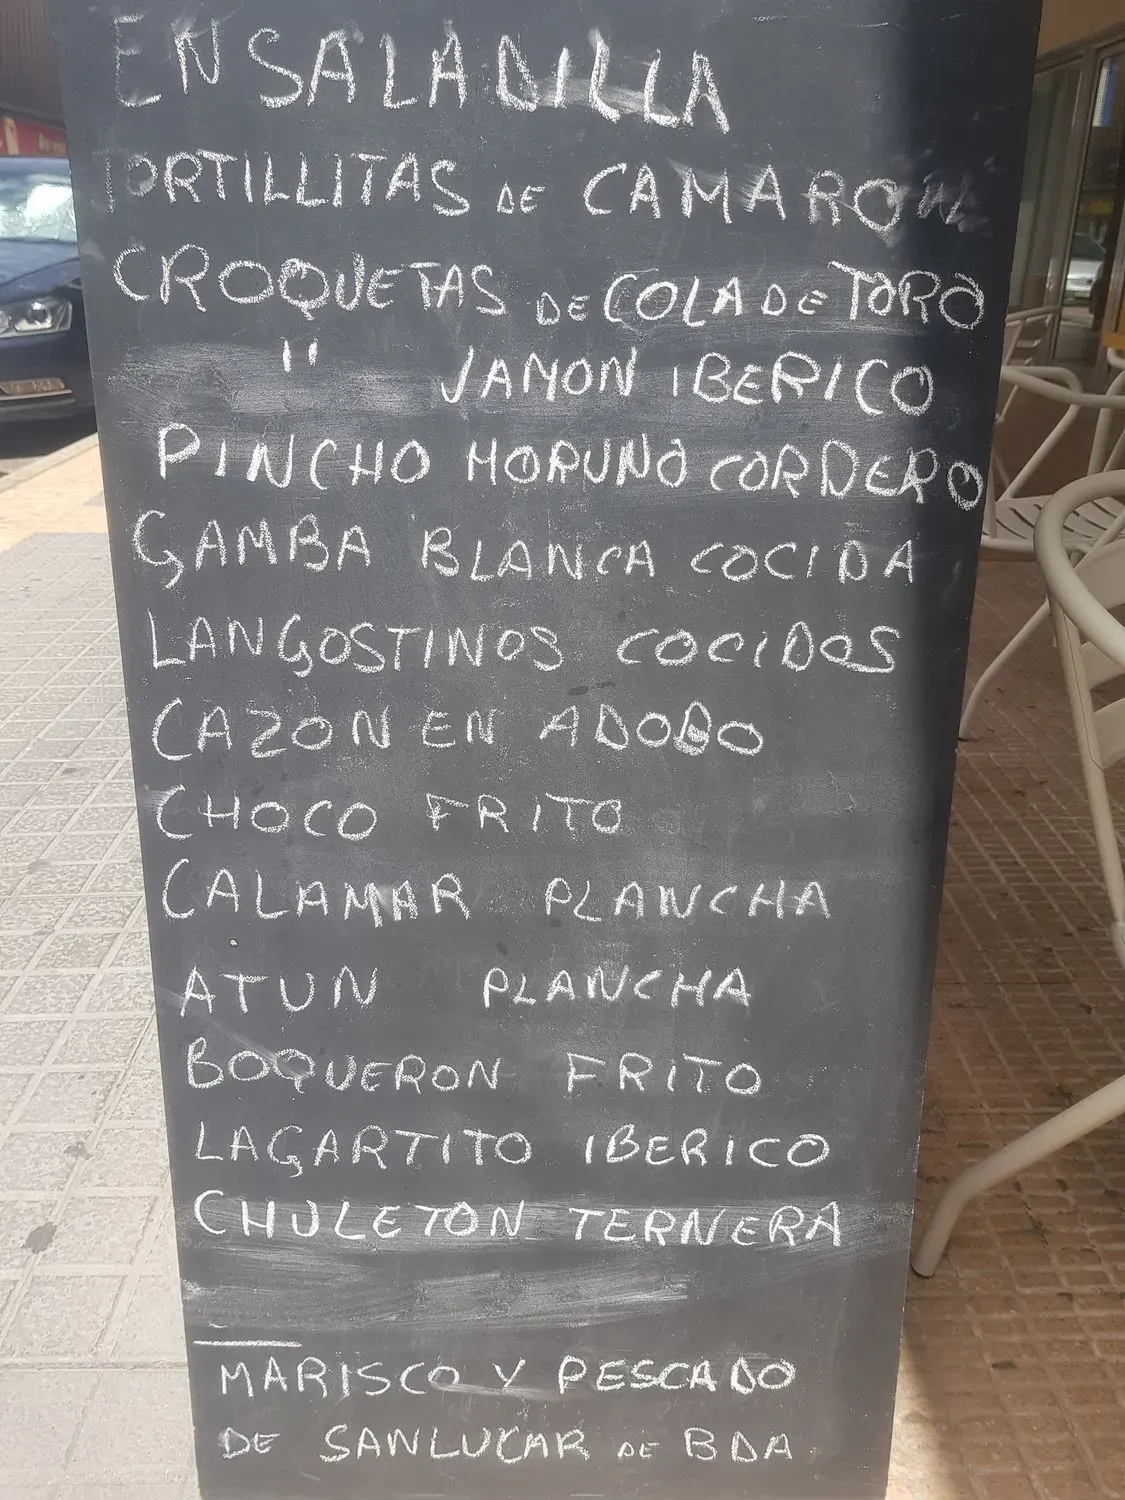 ENSALADILLA
TORTILLITAS DE CAMARON
CROQUETAS DE COLA DE TORO
" JAMON IBERICO
PINCHO MORUNO CORDERO
GAMBA BLANCA COCIDA
LANGOSTINOS COCIDOS
CAZON EN ADOBO
CHOCO FRITO
CALAMAR PLANCHA
ATUN PLANCHA
BOQUERON FRITO
LAGARTITO IBERICO
CHULETON TERNERA
MARISCO Y PESCADO
DE SANLUCAR DE BDA